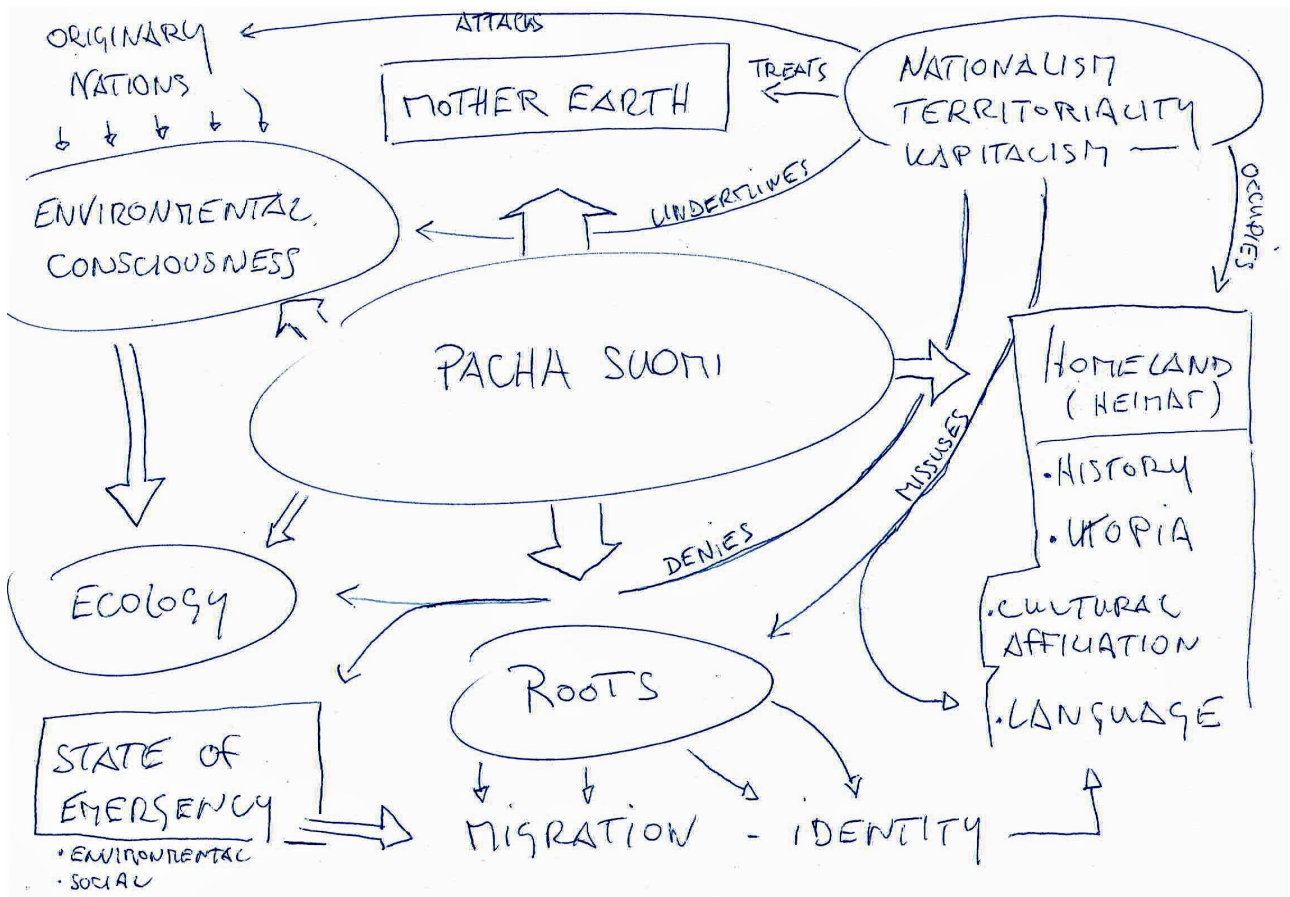 ORIGINARY
NATIONS
ATTACKS
MOTHER EARTH
TREATS
NATIONALISM
TERRITORIALITY
KAPITALISM
UNDERMINES
OCCUPIES
ENVIRONMENTAL
CONSCIOUSNESS
PACHA SUOMI
HOMELAND
(HEIMAT)
• HISTORY
• UTOPIA
• CULTURAL
AFFILIATION
• LANGUAGE
MISSUSES
DENIES
ECOLOGY
ROOTS
STATE OF
EMERGENCY
• ENVIRONMENTAL
• SOCIAL
MIGRATION - IDENTITY